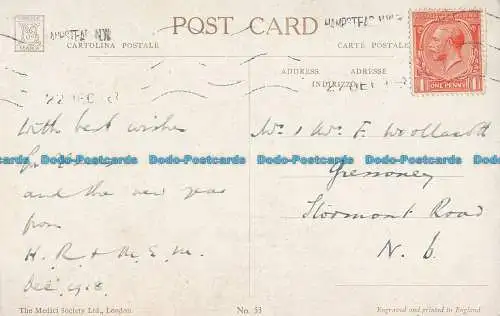 POST CARD
CARTOLINA POSTALE
CARTE POSTALE
HAMPSTEAD N.W.
HAMPSTEAD N.W.
ADDRESS ADRESSE
INDIRIZZO
ONE PENNY
22 DEC
With best wishes
for
and the new year
from
H. R. & M. E. M.
Dec 1918
Mr & Mrs F Woollacott
Stormont Road
N. 6.
Dodo-Postcards Dodo-Postcards Dodo-Postcards Dodo-Postcards
The Medici Society Ltd., London.
No. 53
Engraved and printed in England